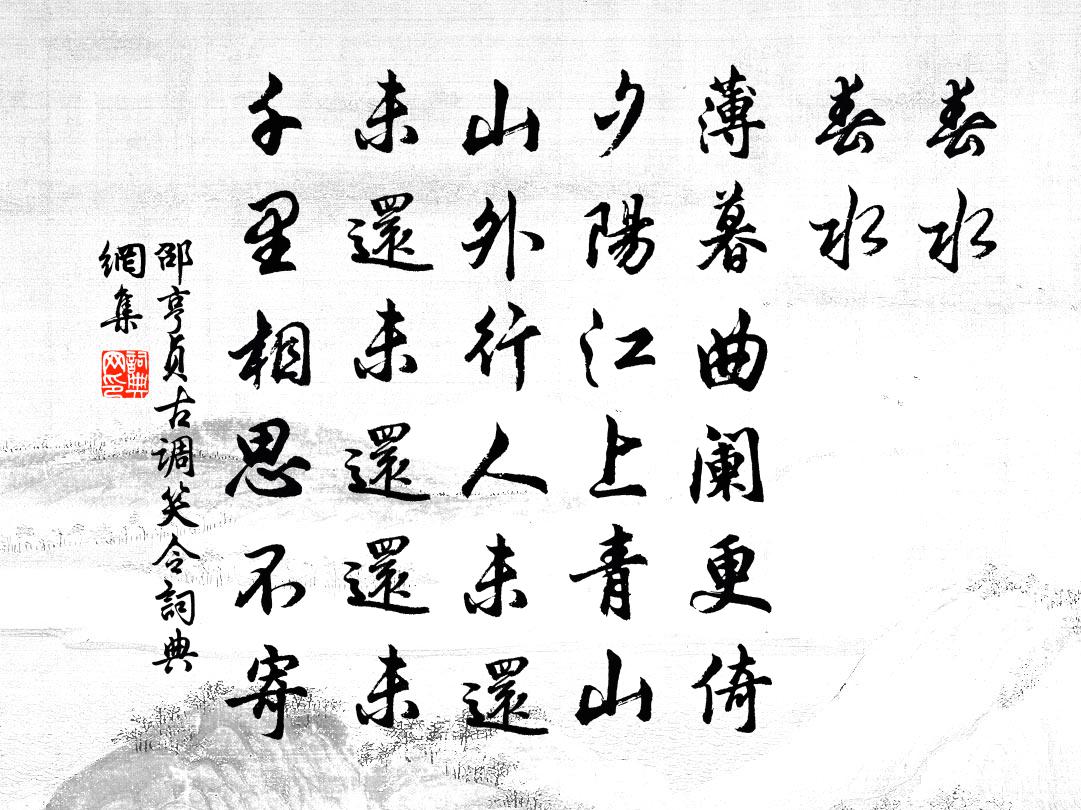 春水
春水
薄暮曲阑更倚
夕陽江上青山
山外行人未還
未還未還還未
千里相思不寄
邵亨貞古调笑令詞典
網集
詞典
网印